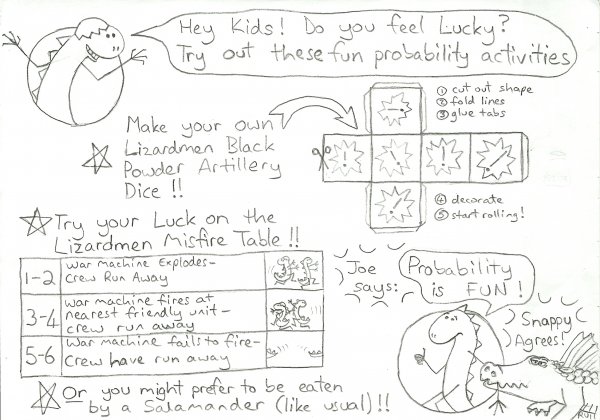 Hey Kids! Do you feel Lucky?
Try out these fun probability activities
① cut out shape
② fold lines
③ glue tabs
Make your own
Lizardmen Black
Powder Artillery
Dice !!
! ! ! ! ! !
④ decorate
⑤ start rolling!
Try your Luck on the
Lizardmen Misfire Table !!
1-2 War machine Explodes-
Crew Run Away
3-4 War machine fires at
nearest friendly unit-
crew run away
5-6 War machine fails to fire-
Crew have run away
Or you might prefer to be eaten
by a Salamander (like usual) !!
Joe
says:
Probability
is FUN!
Snappy
Agrees!